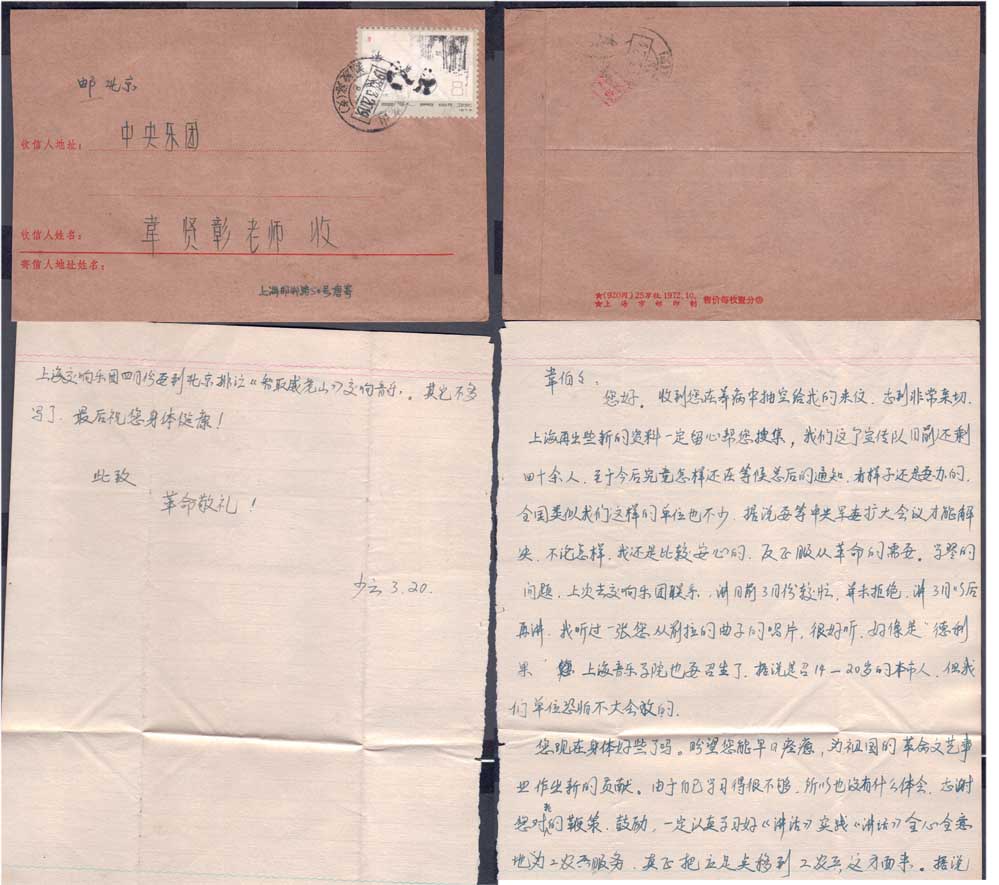 邮北京
收信人地址：
中央乐团
收信人姓名：
韋贤彰老师 收
寄信人地址姓名：
上海邯郸路50号唐寄
★(920丙) 25万枚 1972.10.
★上海市邮印制 售价每枚壹分
韋伯伯：
您好。收到您在养病中抽空给我的来仪，感到非常亲切。
上海再出些新的资料一定留心帮您搜集，我们这个宣传队目前还剩
四十余人，至于今后究竟怎样还在等候总后的通知，看样子还是要办的。
全国类似我们这样的单位也不少，据说要等中央军委扩大会议才能解
决，不论怎样，我还是比较安心的，反正服从革命的需要。学琴的
问题，上次去交响乐团联系，讲目前3月份较忙，并未拒绝，讲3月以后
再讲，我听过一张您从前拉的曲子的唱片，很好听，好像是"德利
果" 上海音乐学院也要召生了，据说是召14—20岁的本市人，但我
们单位恐怕不大会放的。
您现在身体好些了吗。盼望您能早日痊癒，为祖国的革命文艺事
业作出新的贡献。由于自己学习得很不够，所以也没有什么体会，感谢
您对我的鞭策、鼓励，一定认真学习好《讲话》实践《讲话》全心全意
地为工农兵服务，真正把立足点移到工农兵这方面来。据说
上海交响乐团四月份要到北京排注《智取威虎山》交响音乐。其它不多
写了，最后祝您身体健康！
此致
革命敬礼！
少云 3.20.